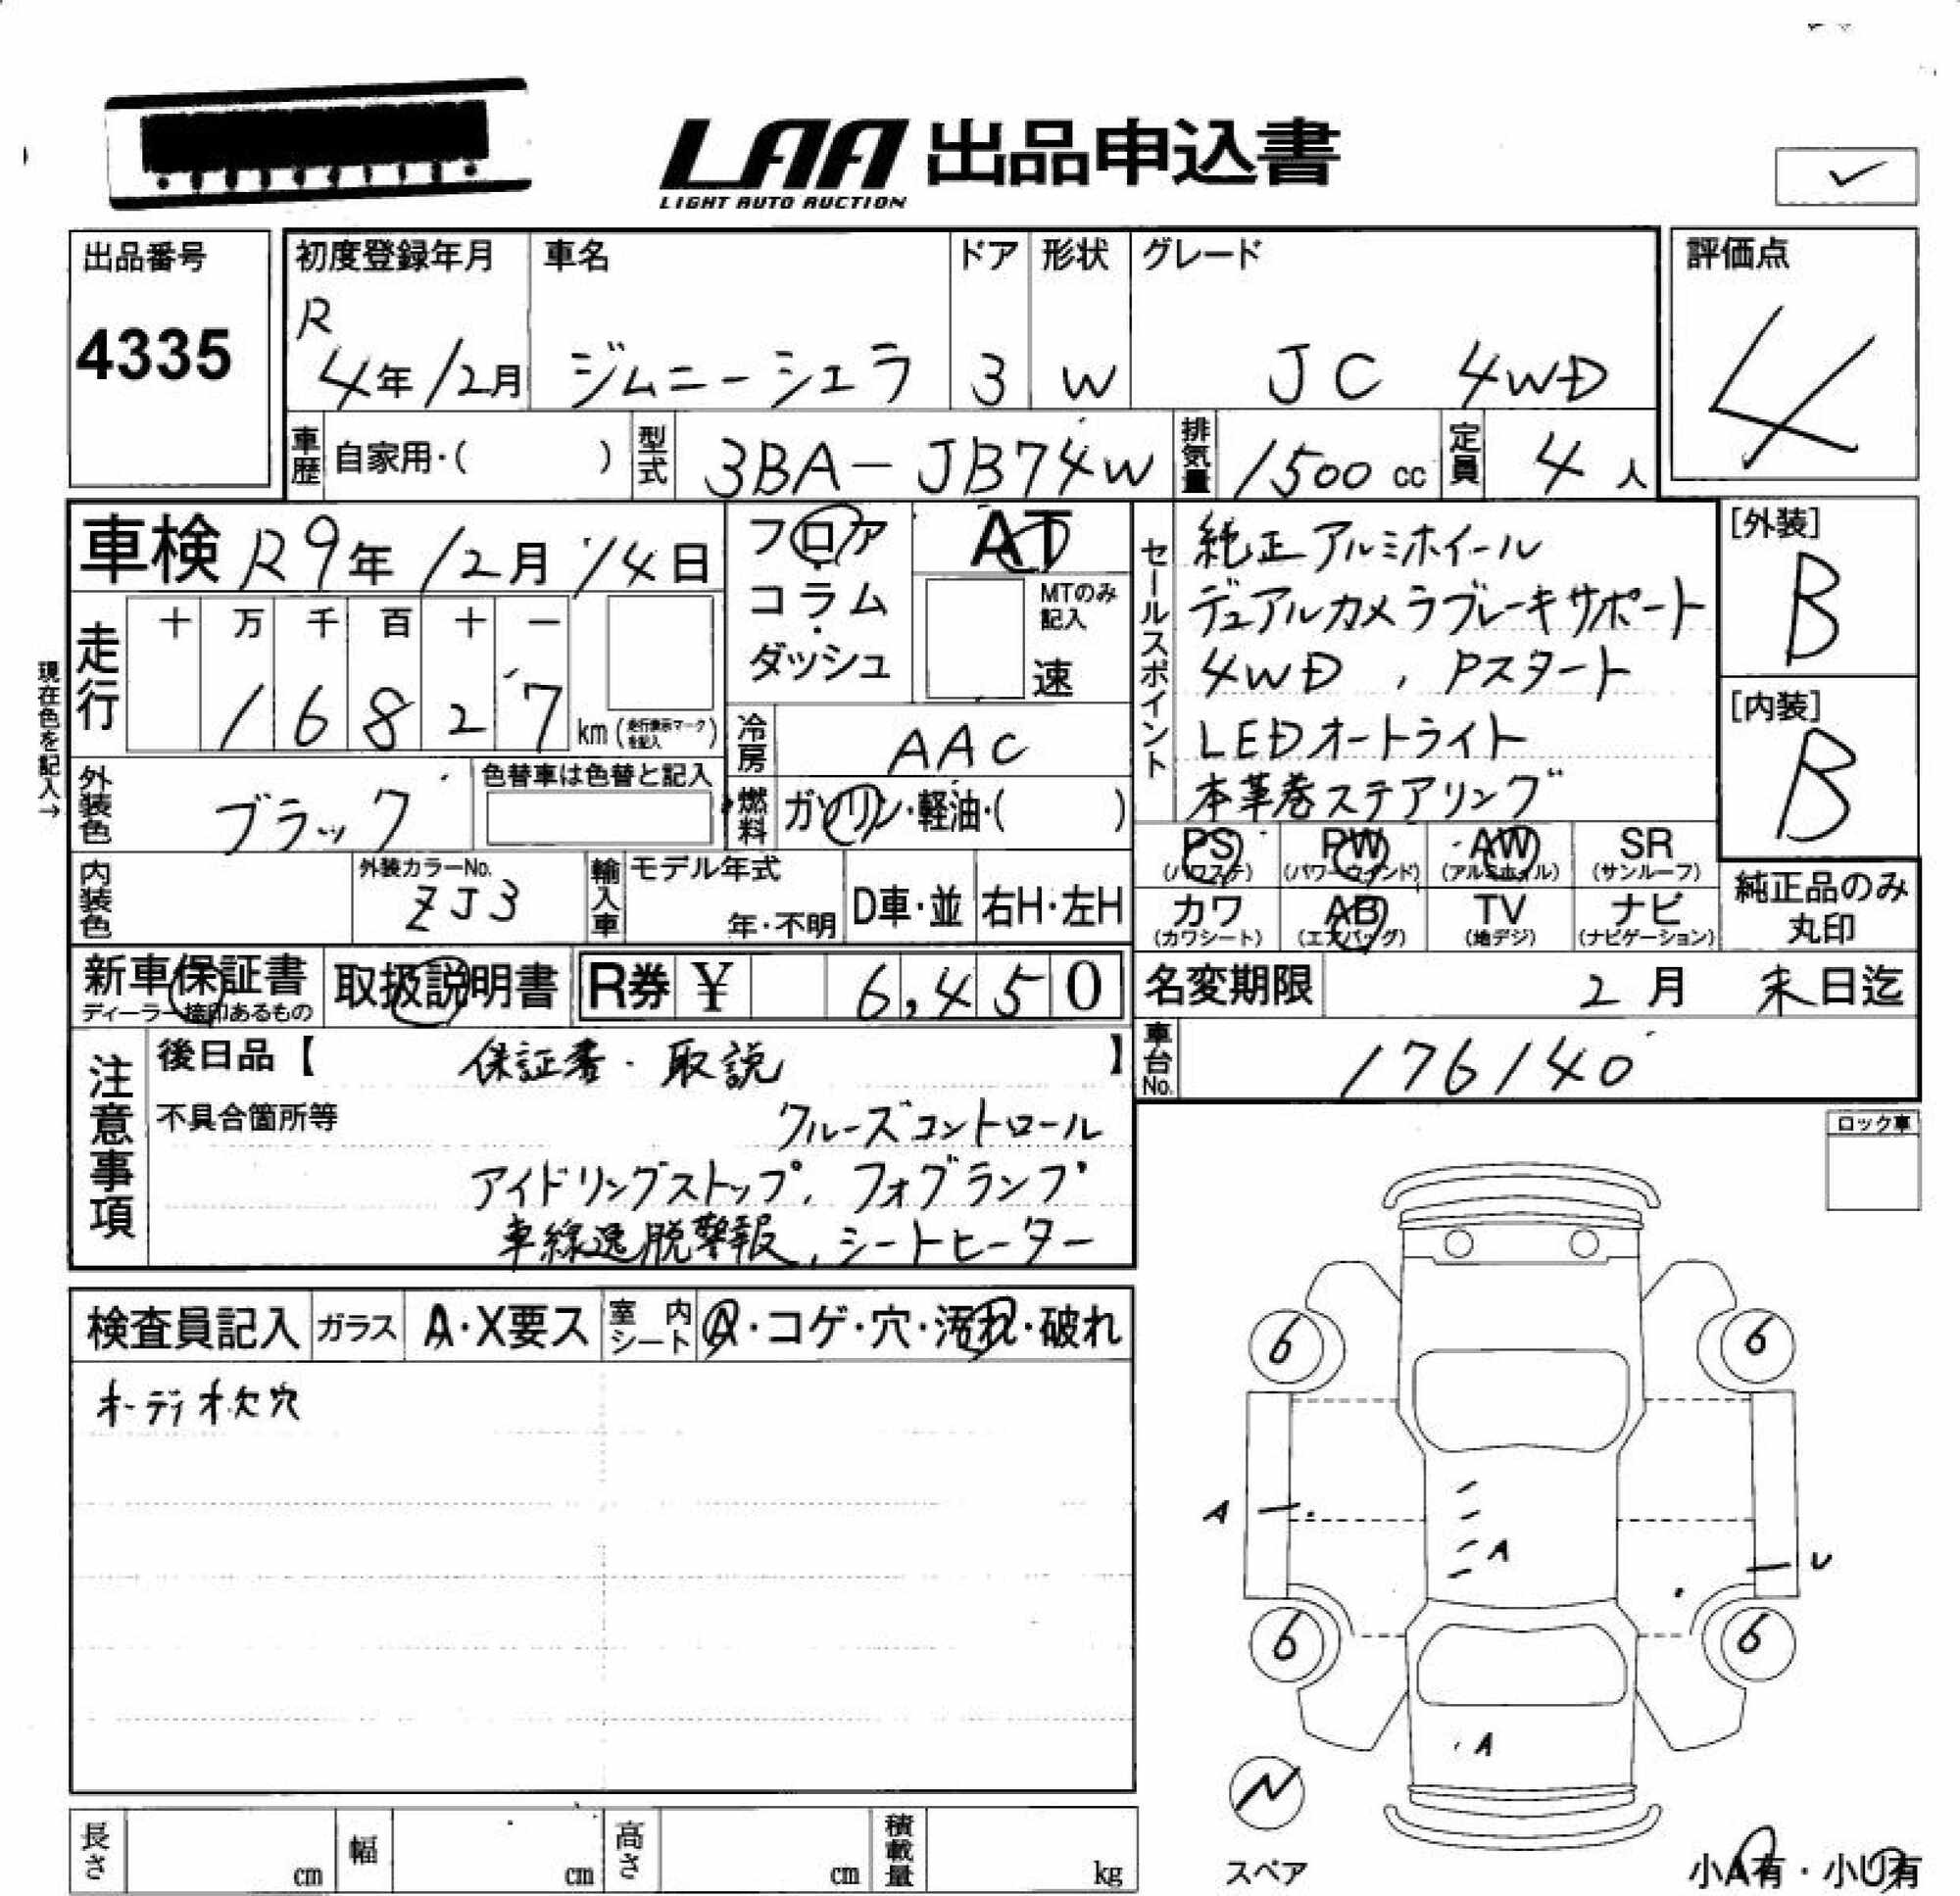 LAA 出品申込書
LIGHT AUTO AUCTION
出品番号
4335
初度登録年月
R
4年12月
車名
ジムニーシエラ
ドア
3
形状
W
グレード
JC 4WD
評価点
4
車歴 自家用・( )
型式 3BA-JB74W
排気量 1500 cc
定員 4 人
車検 R9年12月14日
フロア・コラム・ダッシュ
AT
MTのみ記入
速
セールスポイント
純正アルミホイール
デュアルカメラブレーキサポート
4WD , Pスタート
LEDオートライト
本革巻ステアリング
[外装]
B
[内装]
B
現在色を記入→
走行
十 万 千 百 十 一
1 6 8 2 7 km (走行表示マークを記入)
冷房 AAC
外装色 ブラック
色替車は色替と記入
燃料 ガソリン・軽油・( )
PS (パワステ)
PW (パワーウインド)
AW (アルミホイル)
SR (サンルーフ)
カワ (カワシート)
AB (エアバッグ)
TV (地デジ)
ナビ (ナビゲーション)
純正品のみ
丸印
内装色
外装カラーNo.
ZJ3
輸入車
モデル年式
年・不明
D車・並
右H・左H
新車保証書
ディーラー捺印あるもの
取扱説明書
R券 ¥ 6,450
名変期限 2月 末日迄
注意事項
後日品【 保証書・取説 】
車台No. 176140
不具合箇所等
クルーズコントロール
アイドリングストップ, フォグランプ
車線逸脱警報, シートヒーター
ロック車
検査員記入
ガラス A・X要ス
室内シート A・コゲ・穴・汚れ・破れ
オーディオ欠穴
6
6
A
A
U
6
6
A
スペア
小A有・小U有
長さ cm
幅 cm
高さ cm
積載量 kg